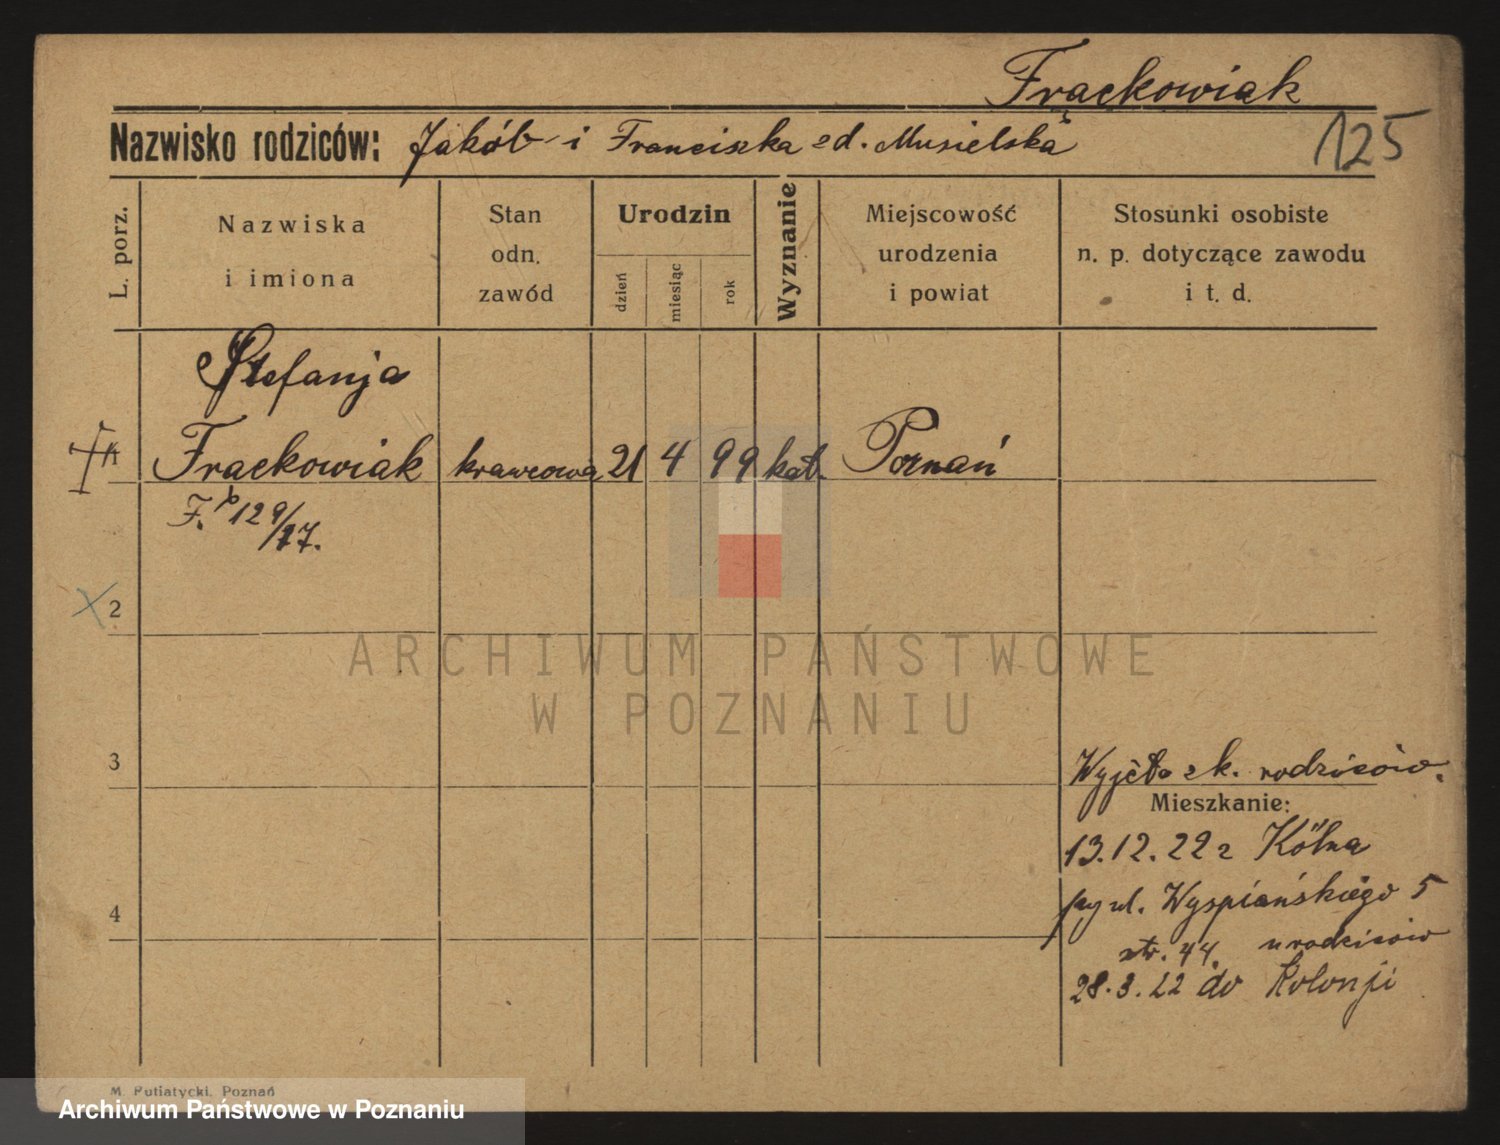 Frąckowiak
Nazwisko rodziców: Jakób i Franciszka zd. Musielska
125
L. porz.
Nazwiska
i imiona
Stan
odn.
zawód
Urodzin
dzień
miesiąc
rok
Wyznanie
Miejscowość
urodzenia
i powiat
Stosunki osobiste
n. p. dotyczące zawodu
i t. d.
Stefanja
Frąckowiak krawcowa 21 4 99 kat. Poznań
F. 129/27.
2
ARCHIWUM PAŃSTWOWE
W POZNANIU
3
Wyjęto z k. rodziców.
Mieszkanie:
13.12.22 z Kölna
ul. Wyspiańskiego 5
4
str. 44. u rodziców
28.3.22 do Kolonji
M. Putiatycki, Poznań
Archiwum Państwowe w Poznaniu